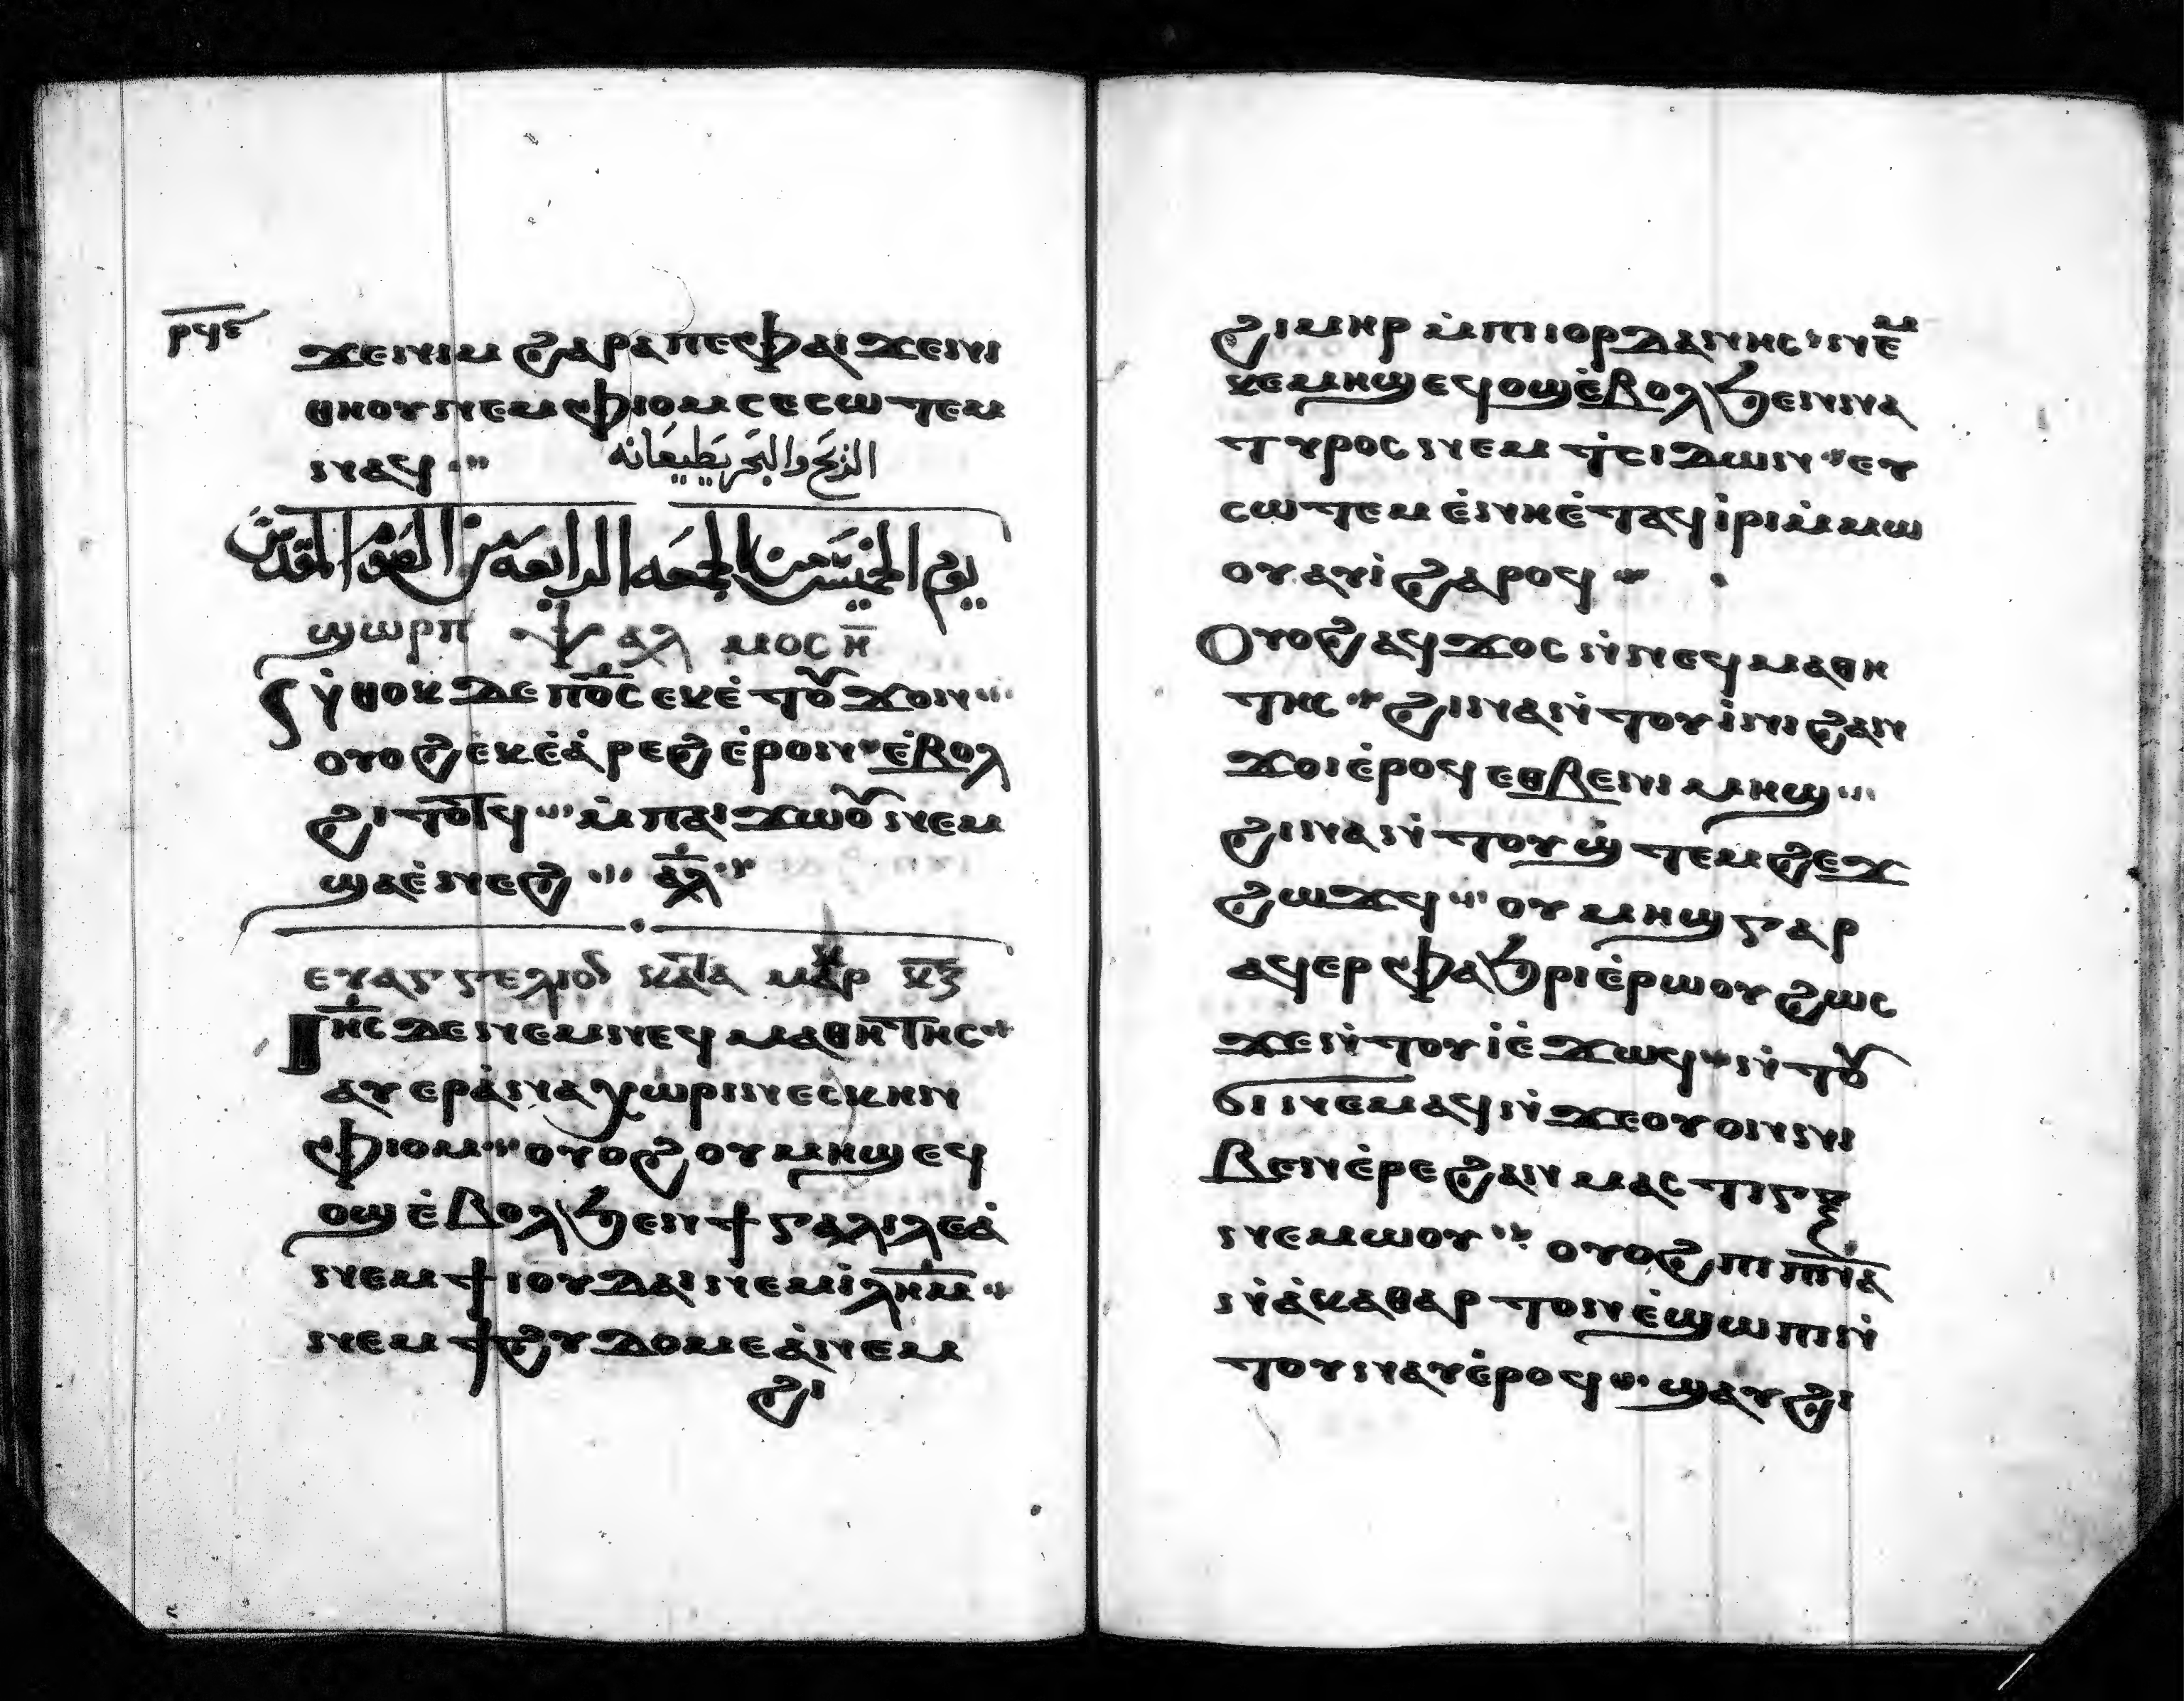 ⲣϥⲉ
ϫⲉⲛⲓⲙ ϩⲁⲣⲁ ⲡⲉ ⲫⲁⲓ ϫⲉⲛⲓ
ⲑⲏⲟⲩ ⲛⲉⲙ ⲫⲓⲟⲙ ⲥⲉⲥⲱⲧⲉⲙ
ⲛⲁϥ
الريح والبحر يطيعانه
يوم الخميس من الجمعه الرابعه من الصوم المقدس
ϣⲱⲣⲡ ⲯⲁⲗⲙⲟⲥ ⲏ̅
ⲛ̇ⲑⲟⲕ ⲇⲉ ⲡⲟ̅ⲥ̅ ⲉⲕⲉ̇ⲧⲟⲩϫⲟⲛ
ⲟⲩⲟϩ ⲉⲕⲉ̇ⲁ̇ⲣⲉϩ ⲉ̇ⲣⲟⲛ ⲉ̇ⲃⲟⲗ
ϩⲓⲧⲟⲧϥ ⲙ̇ⲡⲁⲓϫⲱⲟⲩ ⲛⲉⲙ
ϣⲁⲉ̇ⲛⲉϩ ⲁ̅ⲗ̅
ⲉⲩⲁⲅⲅⲉⲗⲓⲟⲛ ⲕⲁⲧⲁ ⲙⲁⲣ ⲕ̅ⲍ̅
Ⲓⲏ̅ⲥ̅ ⲇⲉ ⲛⲉⲙ ⲛⲉϥⲙⲁⲑⲏⲧⲏⲥ
ⲁⲩⲉⲣⲁ̇ⲛⲁⲭⲱⲣⲓⲛ ⲉⲥⲕⲏⲛ
ⲫⲓⲟⲙ ⲟⲩⲟϩ ⲟⲩⲙⲏϣ ⲉϥ
ⲟϣ ⲉ̇ⲃⲟⲗϧⲉⲛ ϯⲅⲁⲗⲓⲗⲉⲁ̇
ⲛⲉⲙ ϯⲓⲟⲩⲇⲁⲓ ⲛⲉⲙ ⲓ̇ⲗⲏ̅ⲙ̅
ⲛⲉⲙ ϯϩⲩⲇⲟⲙⲉⲁ̇ ⲛⲉⲙ
ϩⲓ
ϩⲓⲙⲏⲣ ⲙ̇ⲡⲓⲓⲟⲣⲇⲁⲛⲏⲥ ⲛⲉⲙ
ⲕⲉⲙⲏϣ ⲉϥⲟϣ ⲉ̇ⲃⲟⲗϧⲉⲛ ⲛⲁ
ⲧⲩⲣⲟⲥ ⲛⲉⲙ ⲧ̇ⲥⲓⲇⲱⲛ ⲉⲩ
ⲥⲱⲧⲉⲙ ⲉ̇ⲛⲏⲉ̇ⲧⲁϥⲓ̇ⲣⲓ ⲙ̇ⲙⲱ
ⲟⲩ ⲁⲩⲓ̇ ϩⲁⲣⲟϥ
Ⲟⲩⲟϩ ⲁϥϫⲟⲥ ⲛ̇ⲛⲉϥⲙⲁⲑⲏ
ⲧⲏⲥ ϩⲓⲛⲁ ⲛ̇ⲧⲟⲩⲓ̇ⲛⲓ ϩⲁⲛ
ϫⲟⲓ ⲉ̇ⲣⲟϥ ⲉⲑⲃⲉ ⲛⲓⲙⲏϣ
ϩⲓⲛⲁ ⲛ̇ⲧⲟⲩϣ̇ⲧⲉⲙϩⲉϫ
ϩⲱϫϥ ⲟⲩⲙⲏϣ ⲅⲁⲣ
ⲁϥⲉⲣⲫⲁϧⲣⲓ ⲉ̇ⲣⲱⲟⲩ ϩⲱⲥ
ϫⲉ ⲛ̇ⲧⲟⲩⲓ̇ ⲉ̇ϫⲱϥ ⲛ̇ⲧⲟⲩ
ϭⲓⲛⲉⲙⲁϥ ⲛ̇ϫⲉ ⲟⲩⲟⲛ ⲛⲓ
ⲃⲉⲛ ⲉ̇ⲣⲉ ϩⲁⲛⲙⲁⲥⲧⲓⲅⲝ
ⲛⲉⲙⲱⲟⲩ ⲟⲩⲟϩ ⲡⲓⲡ̅ⲛ̅ⲁ̅
ⲛ̇ⲁ̇ⲕⲁⲑⲁⲣⲧⲟⲛ ⲉ̇ϣⲱⲡ ⲛ̇
ⲧⲟⲩⲛⲁⲩ ⲉ̇ⲣⲟϥ ϣⲁⲩϩⲓ